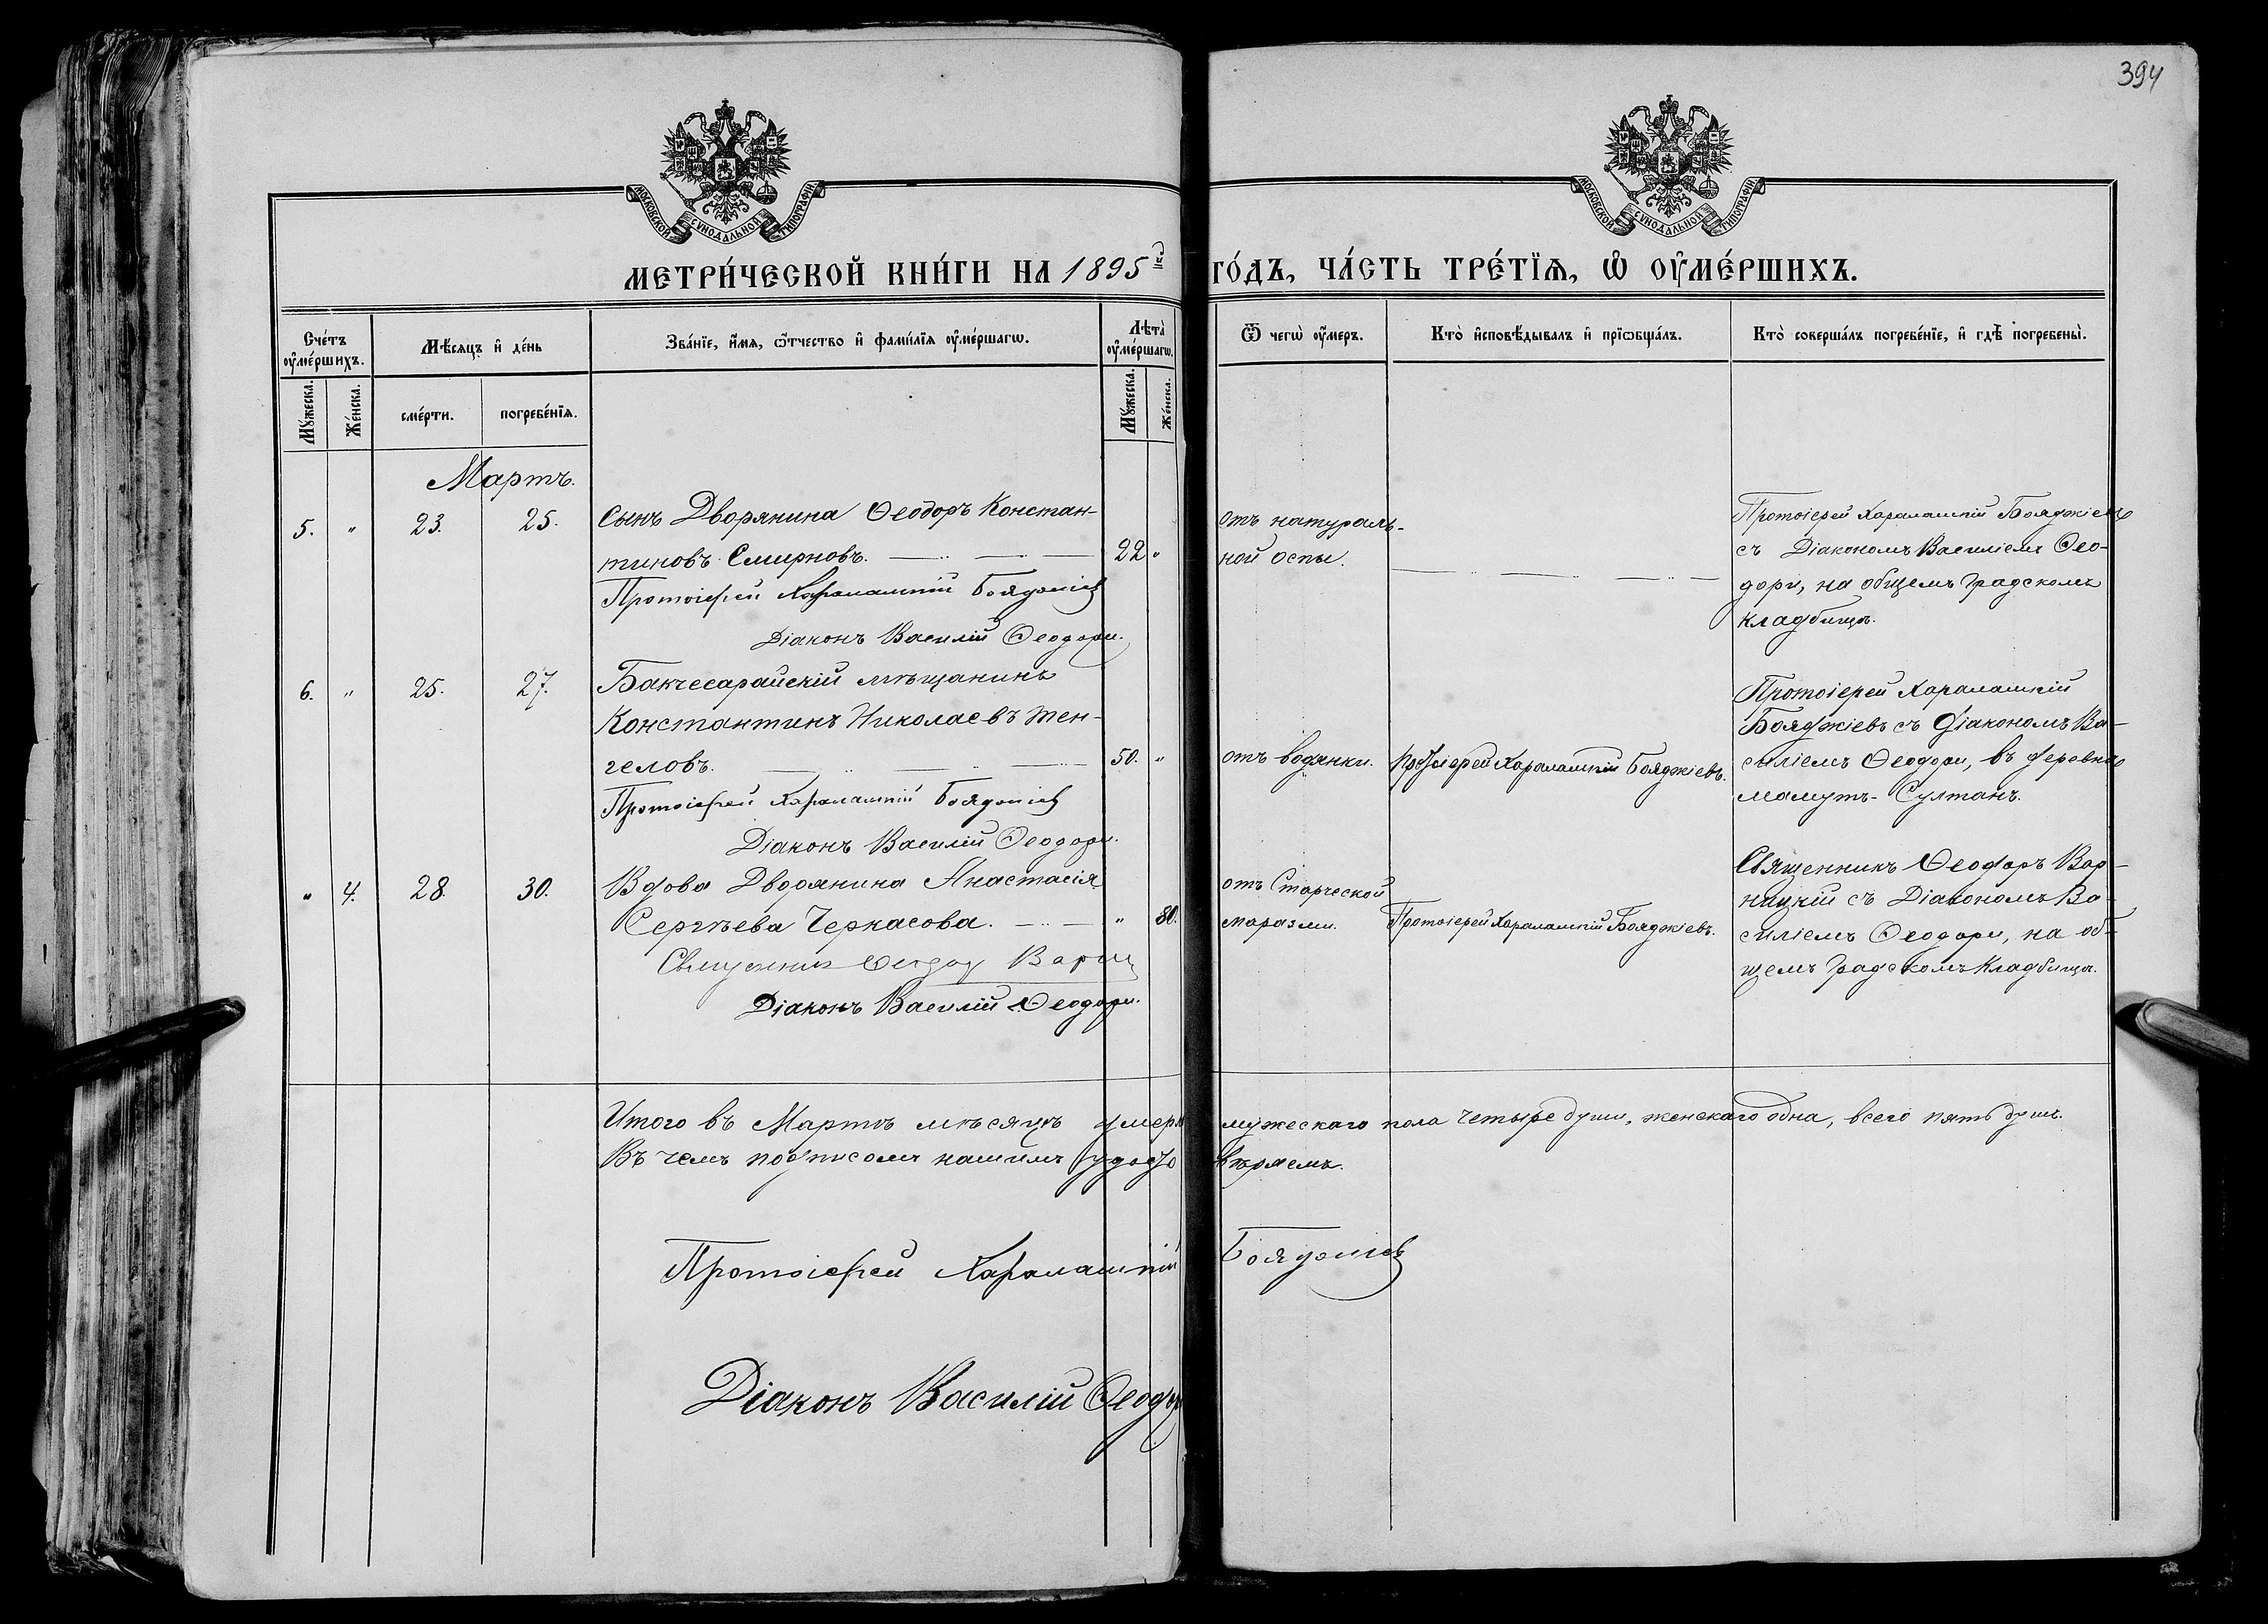 394
МОСКОВСКОЙ СѴНОДАЛЬНОЙ ТИПОГРАФІИ
МОСКОВСКОЙ СѴНОДАЛЬНОЙ ТИПОГРАФІИ
МЕТРИ́ЧЕСКОЙ КНИ́ГИ НА 1895й ГО́ДЪ, ЧА́СТЬ ТРЕ́ТЇѦ, Ѡ҆ ОУ҆МЕ́РШИХЪ.
Сче́тъ оу҆ме́ршихъ.
Мѣ́сяцъ и҆ де́нь
Зва́нїе, и҆́мѧ, ѻ҆́тчество и҆ фами́лїѧ оу҆ме́ршагѡ.
Лѣта̀ оу҆ме́ршагѡ.
Ѿ чегѡ̀ оу҆́меръ.
Кто̀ и҆сповѣ́дывалъ и҆ прїѡбща́лъ.
Кто̀ соверша́лъ погребе́нїе, и҆ гдѣ̀ погребены̀.
Мꙋ́жеска.
Же́нска.
сме́рти.
погребе́нїѧ.
Мꙋ́жеска.
Же́нска.
Мартъ.
5. " 23. 25. Сынъ Дворянина Ѳеодоръ Констан-
тиновъ Смирновъ. 22 "
Протоіерей Харалампій Бояджіевъ
Діаконъ Василій Ѳеодори.
отъ натураль-
ной оспы.
Протоіерей Харалампій Бояджіевъ
съ Діакономъ Василіемъ Ѳео-
дори, на общемъ градскомъ
кладбищѣ.
6. " 25. 27. Бакчесарайскій мѣщанинъ
Константинъ Николаевъ Жен-
геловъ. 50. "
Протоіерей Харалампій Бояджіевъ
Діаконъ Василій Ѳеодори.
отъ водянки.
Протоіерей Харалампій Бояджіевъ.
Протоіерей Харалампій
Бояджіевъ съ Діакономъ Ва-
силіемъ Ѳеодори, въ деревнѣ
Мамутъ-Султанъ.
" 4. 28. 30. Вдова Дворянина Анастасія
Сергѣева Черкасова. " 80.
Священникъ Ѳеодоръ
Діаконъ Василій Ѳеодори.
отъ Старческой
маразми.
Протоіерей Харалампій Бояджіевъ.
Священникъ Ѳеодоръ Вар-
ницкій съ Діакономъ Ва-
силіемъ Ѳеодори, на об-
щемъ градскомъ кладбищѣ.
Итого въ Мартѣ мѣсяцѣ умерло мужескаго пола четыре души, женскаго одна, всего пять душъ.
Въ чемъ подписомъ нашимъ удостовѣряемъ.
Протоіерей Харалампій Бояджіевъ
Діаконъ Василій Ѳеодори